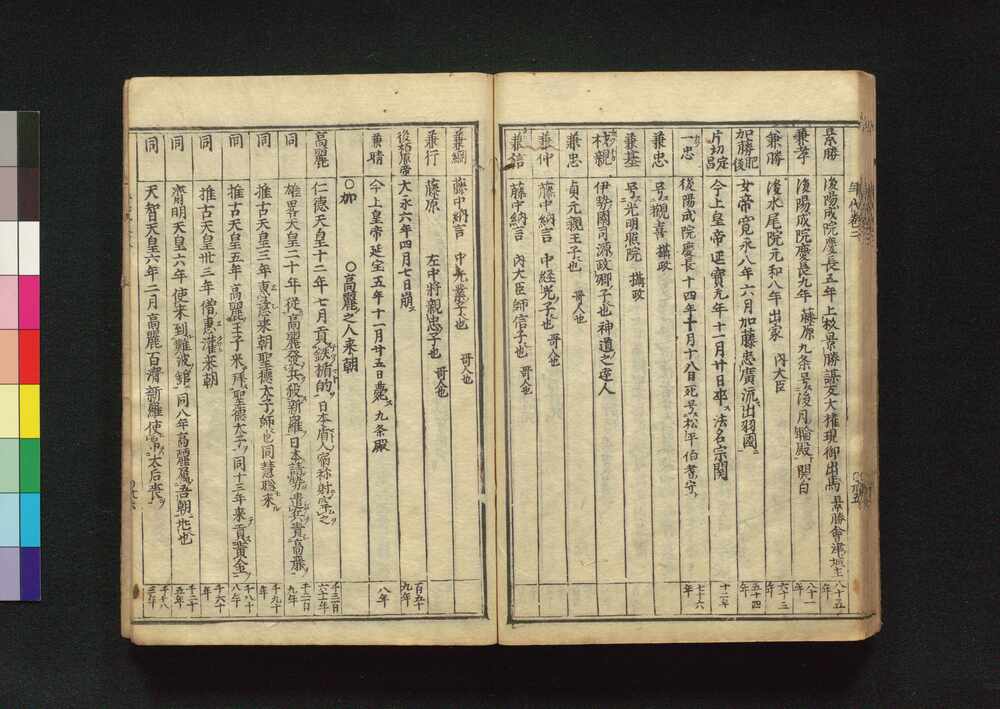 景勝 後陽成院慶長五年 上杉景勝謀反大権現御出馬 景勝會津城主 八十五年
兼孝 後陽成院慶長九年 藤原九条号後月輪殿 関白 八十一年
兼勝 後水尾院元和八年出家 内大臣 六十三年
加勝肥後 女帝寛永八年六月加藤忠廣流出羽國 五十四年
片切且定 今上皇帝延宝元年十一月廿日卒 法名宗関 十二年
一忠 後陽成院慶長十四年十月十八日死号松平伯耆守 七十六年
兼忠 号観喜 摂政
兼基 号光明照院 摂政
材親 伊勢國司源政卿子也神道之達人
兼忠 貞元親王子也 哥人也
兼仲 藤中納言 中経光子也 哥人也
兼信 藤中納言 内大臣師信子也 哥人也
兼綱 藤中納言 中光業子也 哥人也
兼行 藤原 左中将親忠子也 哥人也
後柏原帝 大永六年四月七日崩 百五十九年
兼晴 今上皇帝延宝五年十一月廿五日薨 九条殿 八年
○加 ○高麗之人来朝
高麗 仁徳天皇十二年七月貢鉄楯的
同 雄畧天皇二十年従高麗發兵破新羅
同 推古天皇三年恵慈来朝聖徳太子師也同慧聡来 千九十年
同 推古天皇五年高麗王子来拝聖徳太子同十三年来貢黄金 千八十八年
同 推古天皇卅三年僧恵灌来朝 千六十年
同 齊明天皇六年使来到難波館同八年高麗属吾朝地也 千二十五年
同 天智天皇六年二月高麗百済新羅使常太后喪